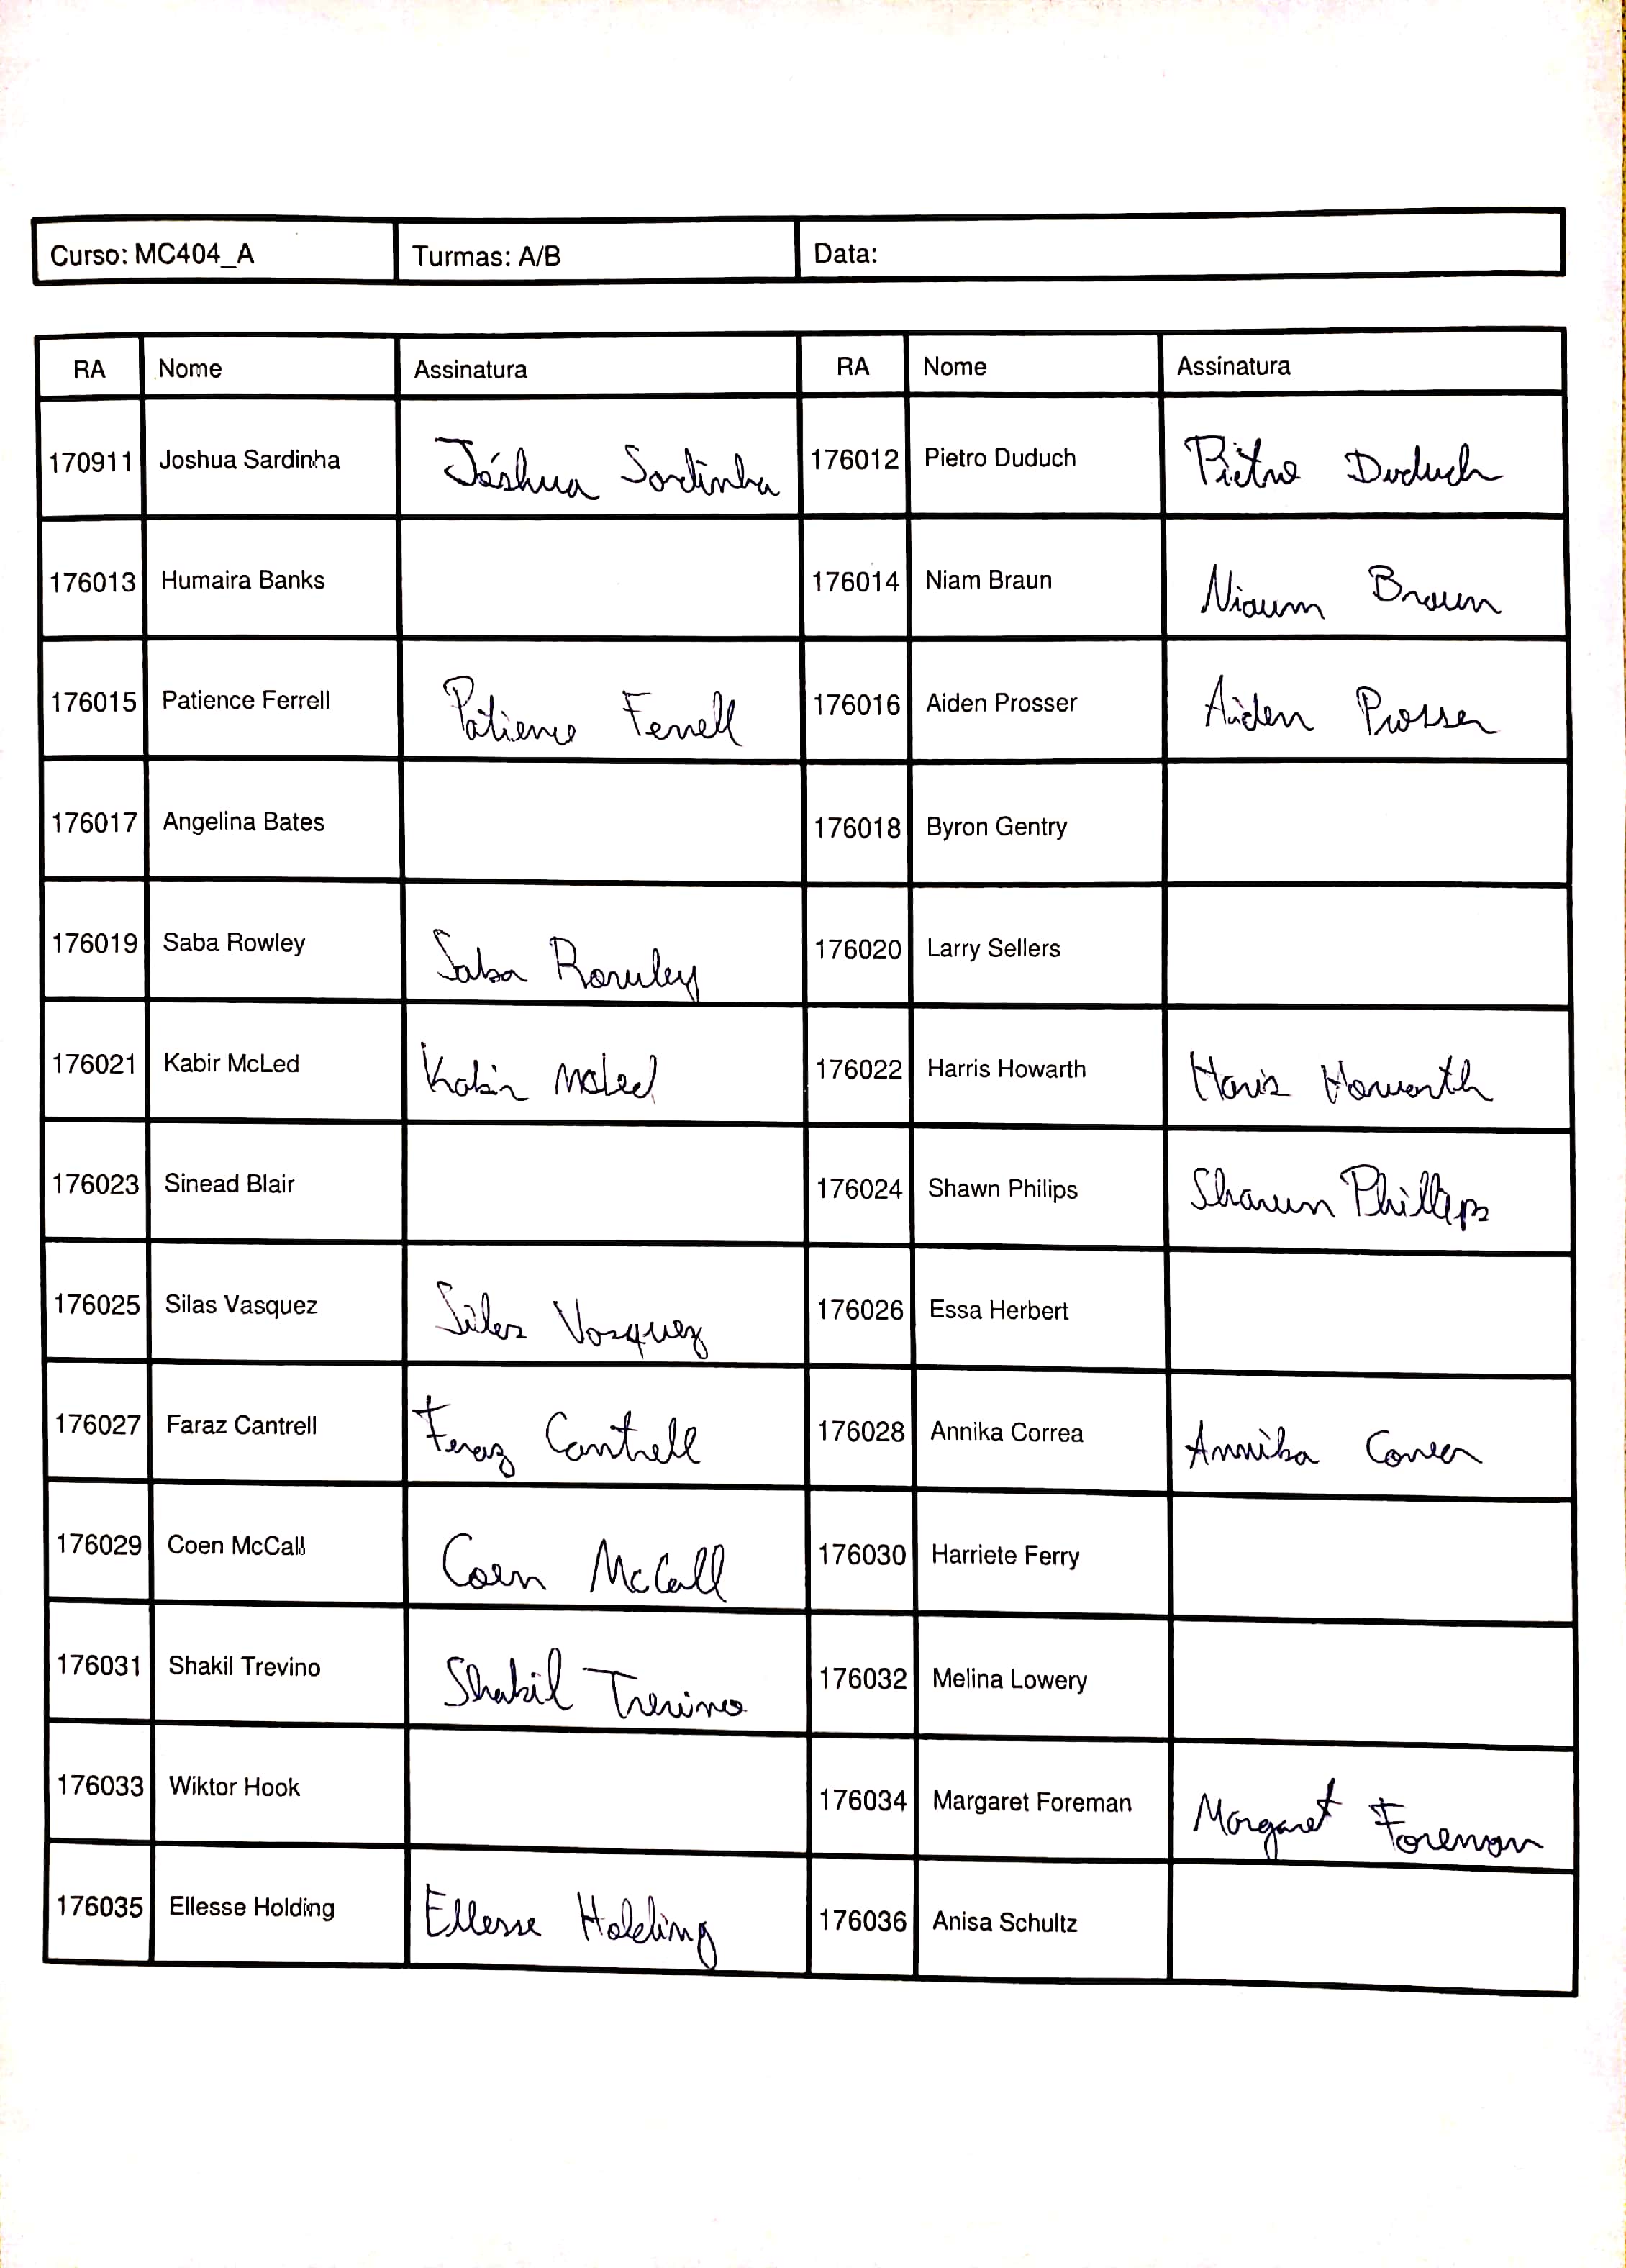 Curso: MC404_A Turmas: A/B Data:
RA Nome Assinatura RA Nome Assinatura
170911 Joshua Sardinha Jóshua Sardinha 176012 Pietro Duduch Pietro Duduch
176013 Humaira Banks 176014 Niam Braun Niaum Braun
176015 Patience Ferrell Patience Ferrell 176016 Aiden Prosser Aiden Prosser
176017 Angelina Bates 176018 Byron Gentry
176019 Saba Rowley Saba Rowley 176020 Larry Sellers
176021 Kabir McLed Kabir McLed 176022 Harris Howarth Harris Howarth
176023 Sinead Blair 176024 Shawn Philips Shawn Phillips
176025 Silas Vasquez Silas Vasquez 176026 Essa Herbert
176027 Faraz Cantrell Feraz Cantrell 176028 Annika Correa Annika Correa
176029 Coen McCall Coen McCall 176030 Harriete Ferry
176031 Shakil Trevino Shakil Trevino 176032 Melina Lowery
176033 Wiktor Hook 176034 Margaret Foreman Margaret Foreman
176035 Ellesse Holding Ellesse Holding 176036 Anisa Schultz